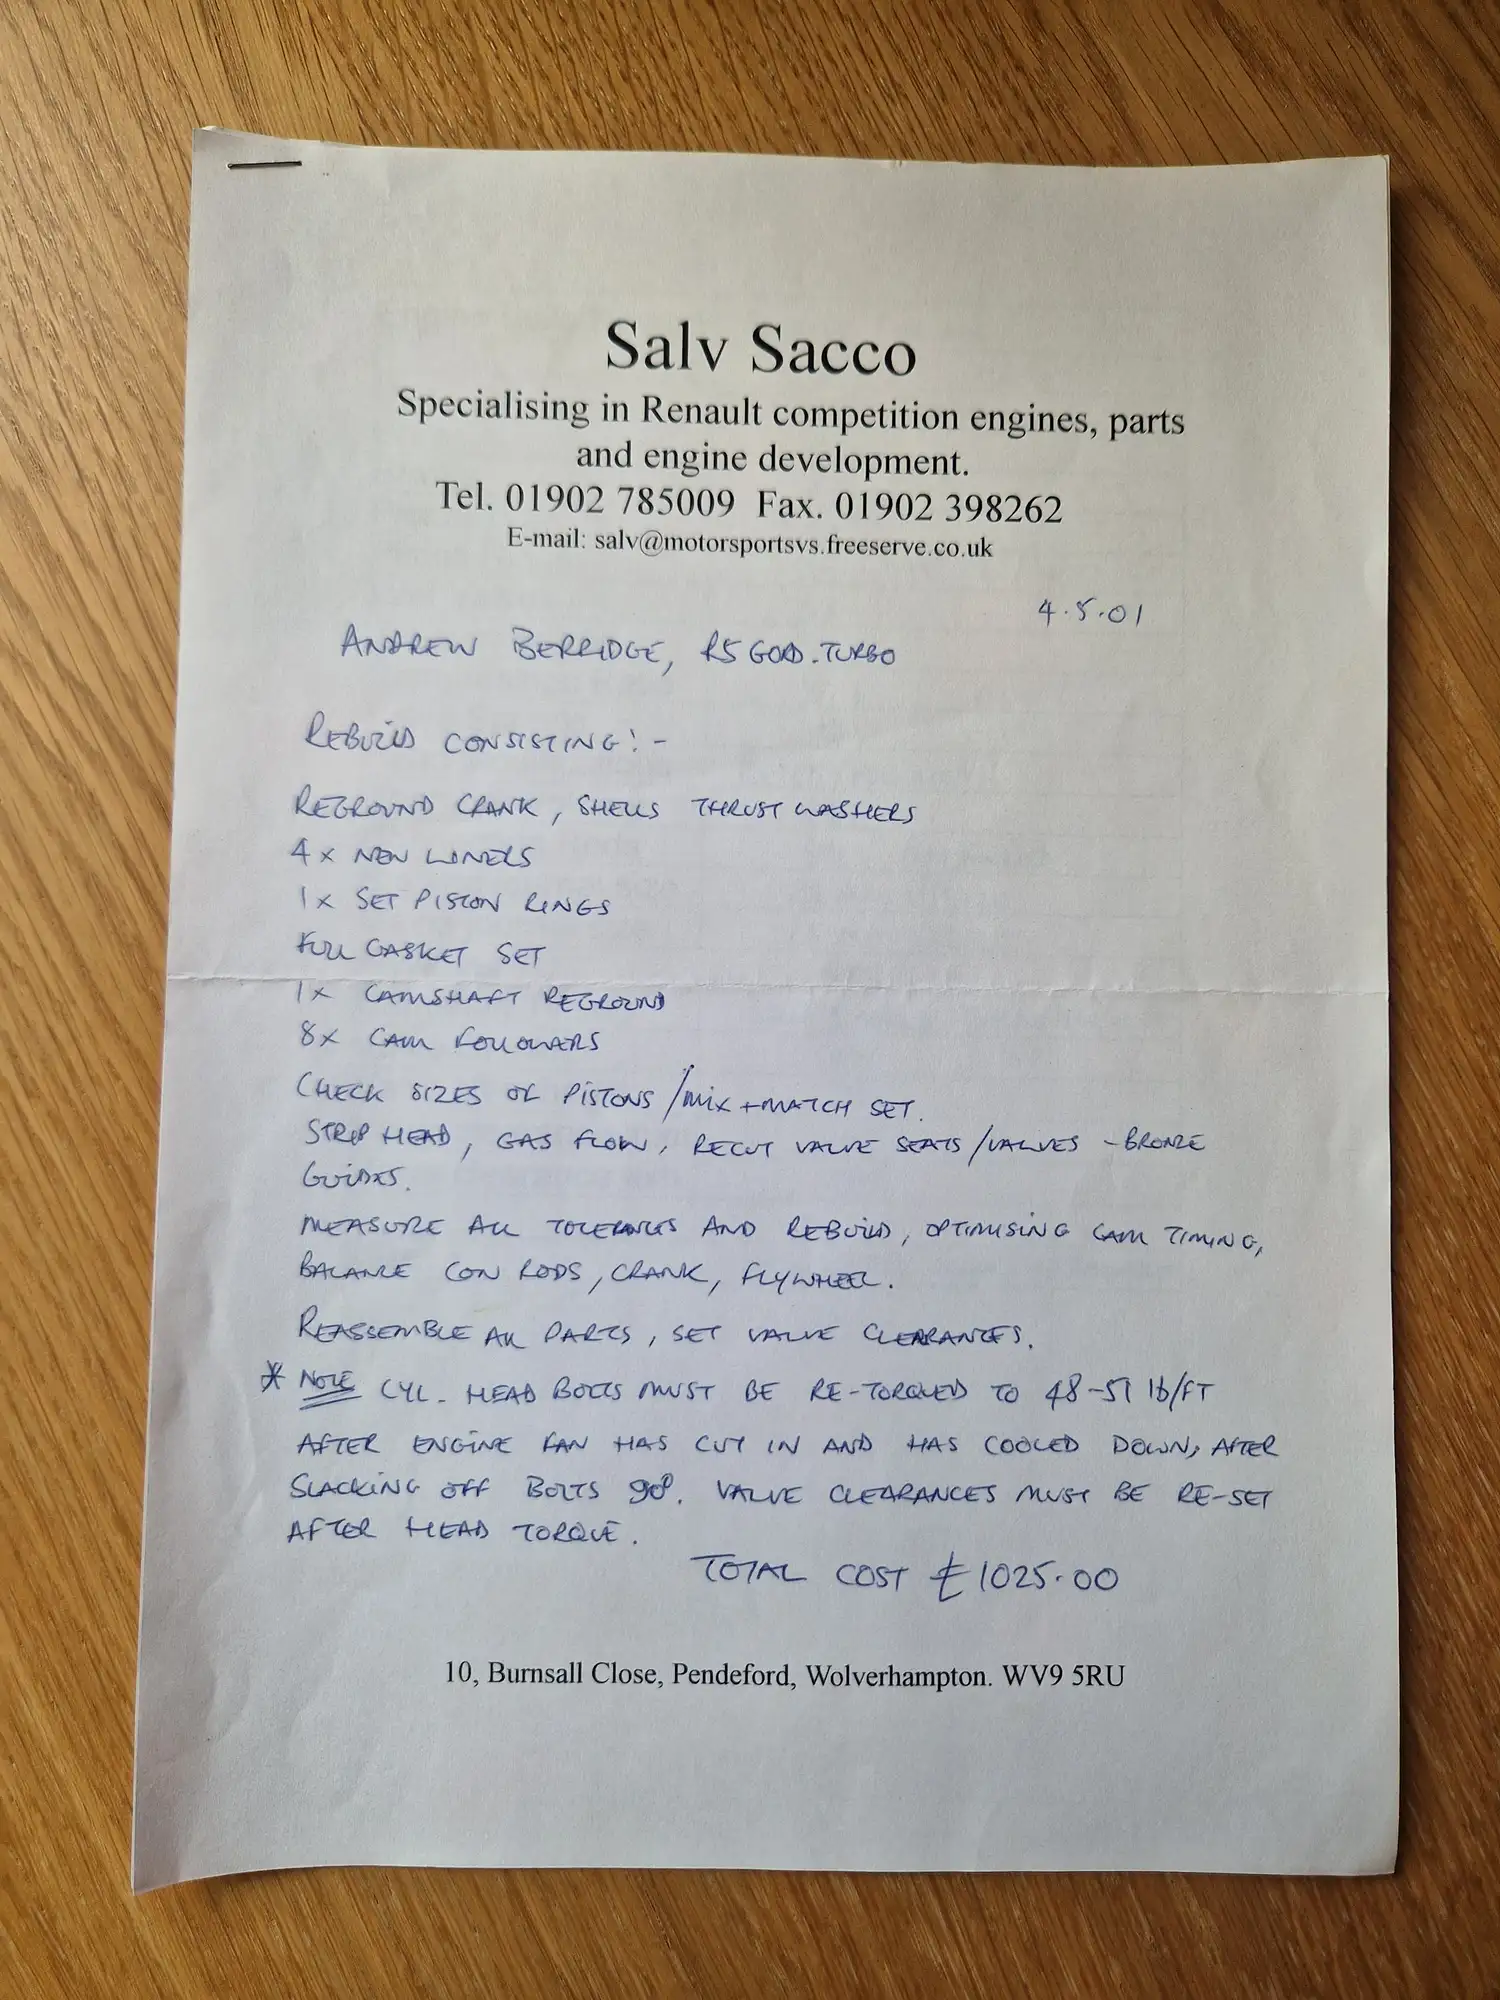 Salv Sacco
Specialising in Renault competition engines, parts
and engine development.
Tel. 01902 785009 Fax. 01902 398262
E-mail: salv@motorsportsvs.freeserve.co.uk
4.5.01
ANDREW BERRIDGE, R5 GORD.TURBO
REBUILD CONSISTING:-
REGROUND CRANK, SHELLS THRUST WASHERS
4x NEW LINERS
1x SET PISTON RINGS
FULL GASKET SET
1x CAMSHAFT REGROUND
8x CAM FOLLOWERS
CHECK SIZES OF PISTONS/MIX+MATCH SET.
STRIP HEAD, GAS FLOW, RECUT VALVE SEATS/VALVES -BRONZE
GUIDES.
MEASURE ALL TOLERANCES AND REBUILD, OPTIMISING CAM TIMING,
BALANCE CON RODS, CRANK, FLYWHEEL.
REASSEMBLE ALL PARTS, SET VALVE CLEARANCES.
* NOTE CYL. HEAD BOLTS MUST BE RE-TORQUED TO 48-51 lb/FT
AFTER ENGINE FAN HAS CUT IN AND HAS COOLED DOWN, AFTER
SLACKING OFF BOLTS 90°. VALVE CLEARANCES MUST BE RE-SET
AFTER HEAD TORQUE.
TOTAL COST £1025.00
10, Burnsall Close, Pendeford, Wolverhampton. WV9 5RU